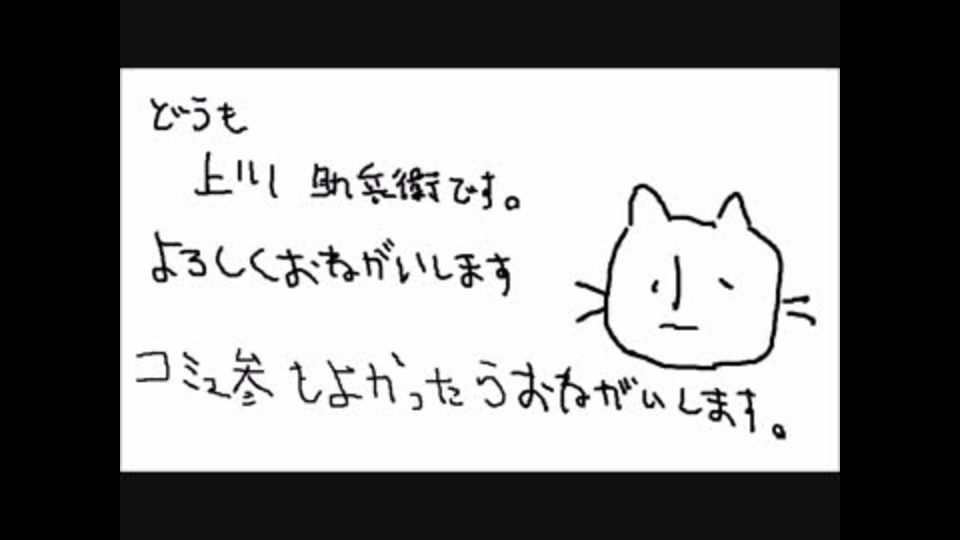 どうも
上川 助兵衛です。
よろしくおねがいします
コミュ参もよかったらおねがいします。